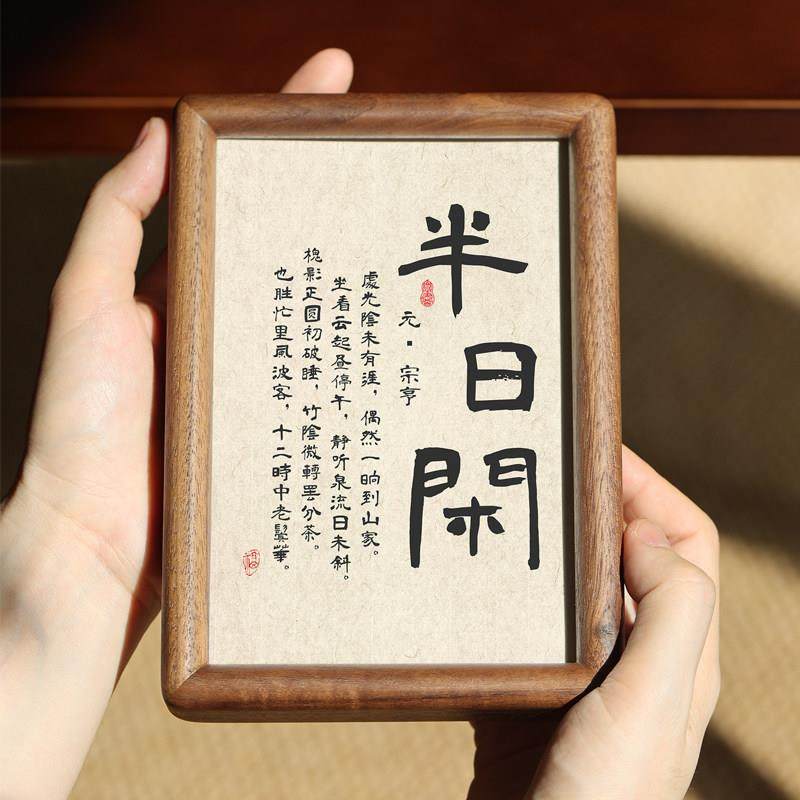 半日閑
元·宗亨
處光陰未有涯，偶然一晌到山家。
坐看云起昼停午，静听泉流日未斜。
槐影正圓初破睡，竹陰微轉罢分茶。
也胜忙里風波客，十二時中老鬓華。